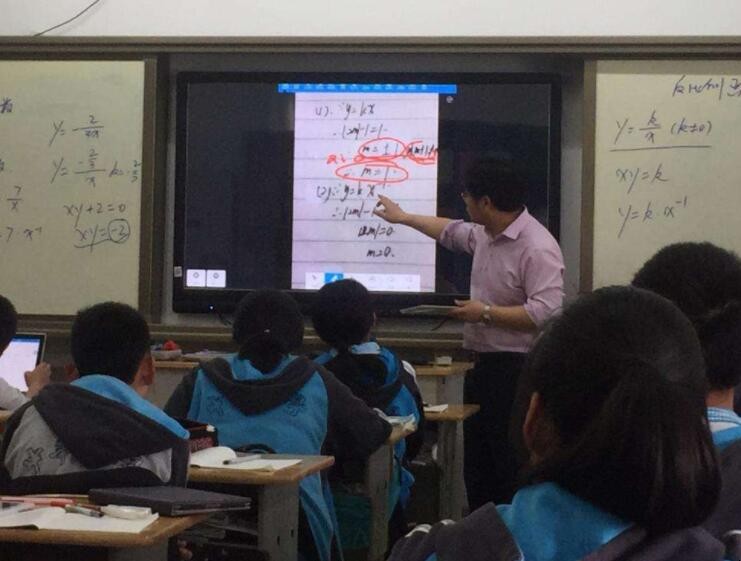 数
y = 2/3x
y = -2/3/x k = -2/3
7/x
xy + 2 = 0
7·x⁻¹
xy = -2
(1) ∵ y = kx
∴ |2m|-1 = 1
m = ±1
∴ m = 1
(2) ∵ y = kx⁻¹
∴ |2m|-1
|2m| = 0
m = 0.
y = k/x (k≠0)
xy = k
y = k·x⁻¹